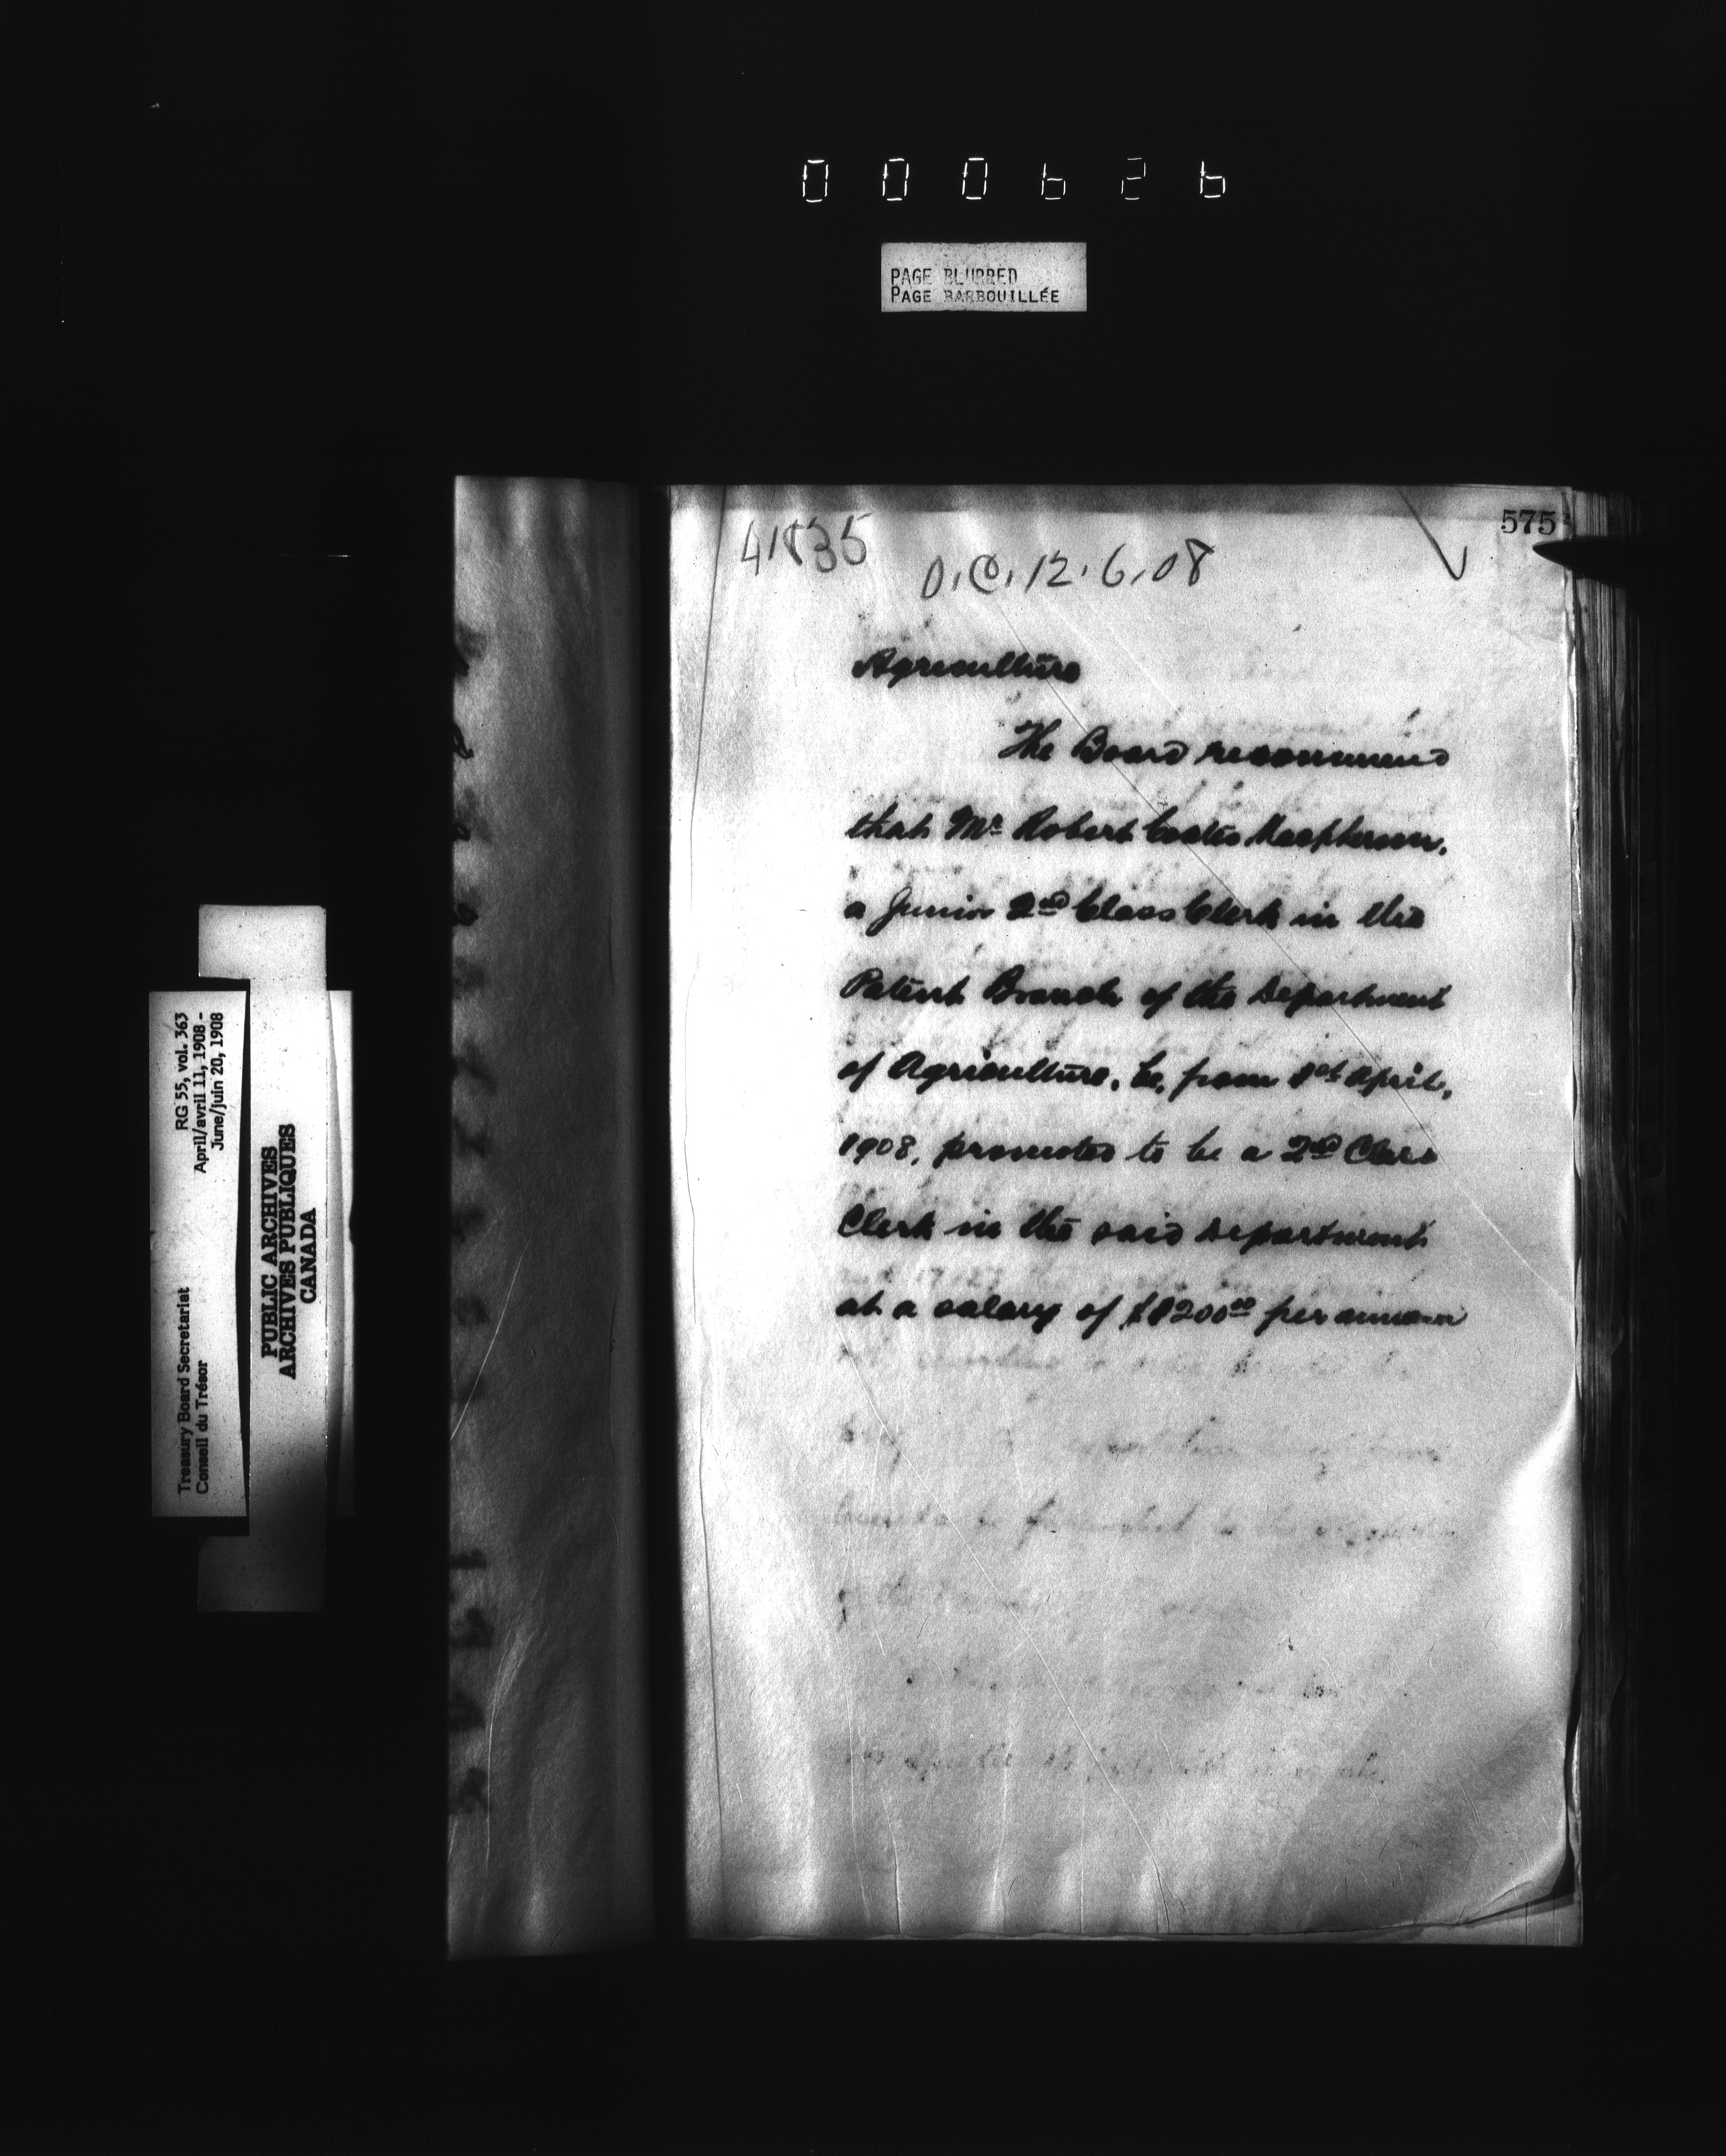 000626
PAGE BLURRED
PAGE BARBOUILLÉE
575
41835
O.C. 12.6.08
Agriculture
The Board recommend
that Mr Robert Coates Macpherson,
a Junior 2nd Class Clerk in the
Patent Branch of the Department
of Agriculture, be, from 1st April,
1908, promoted to be a 2nd Class
Clerk in the said Department
at a salary of $1200.00 per annum
RG 55, vol. 363
April/avril 11, 1908 -
June/juin 20, 1908
Treasury Board Secretariat
Conseil du Trésor
PUBLIC ARCHIVES
ARCHIVES PUBLIQUES
CANADA